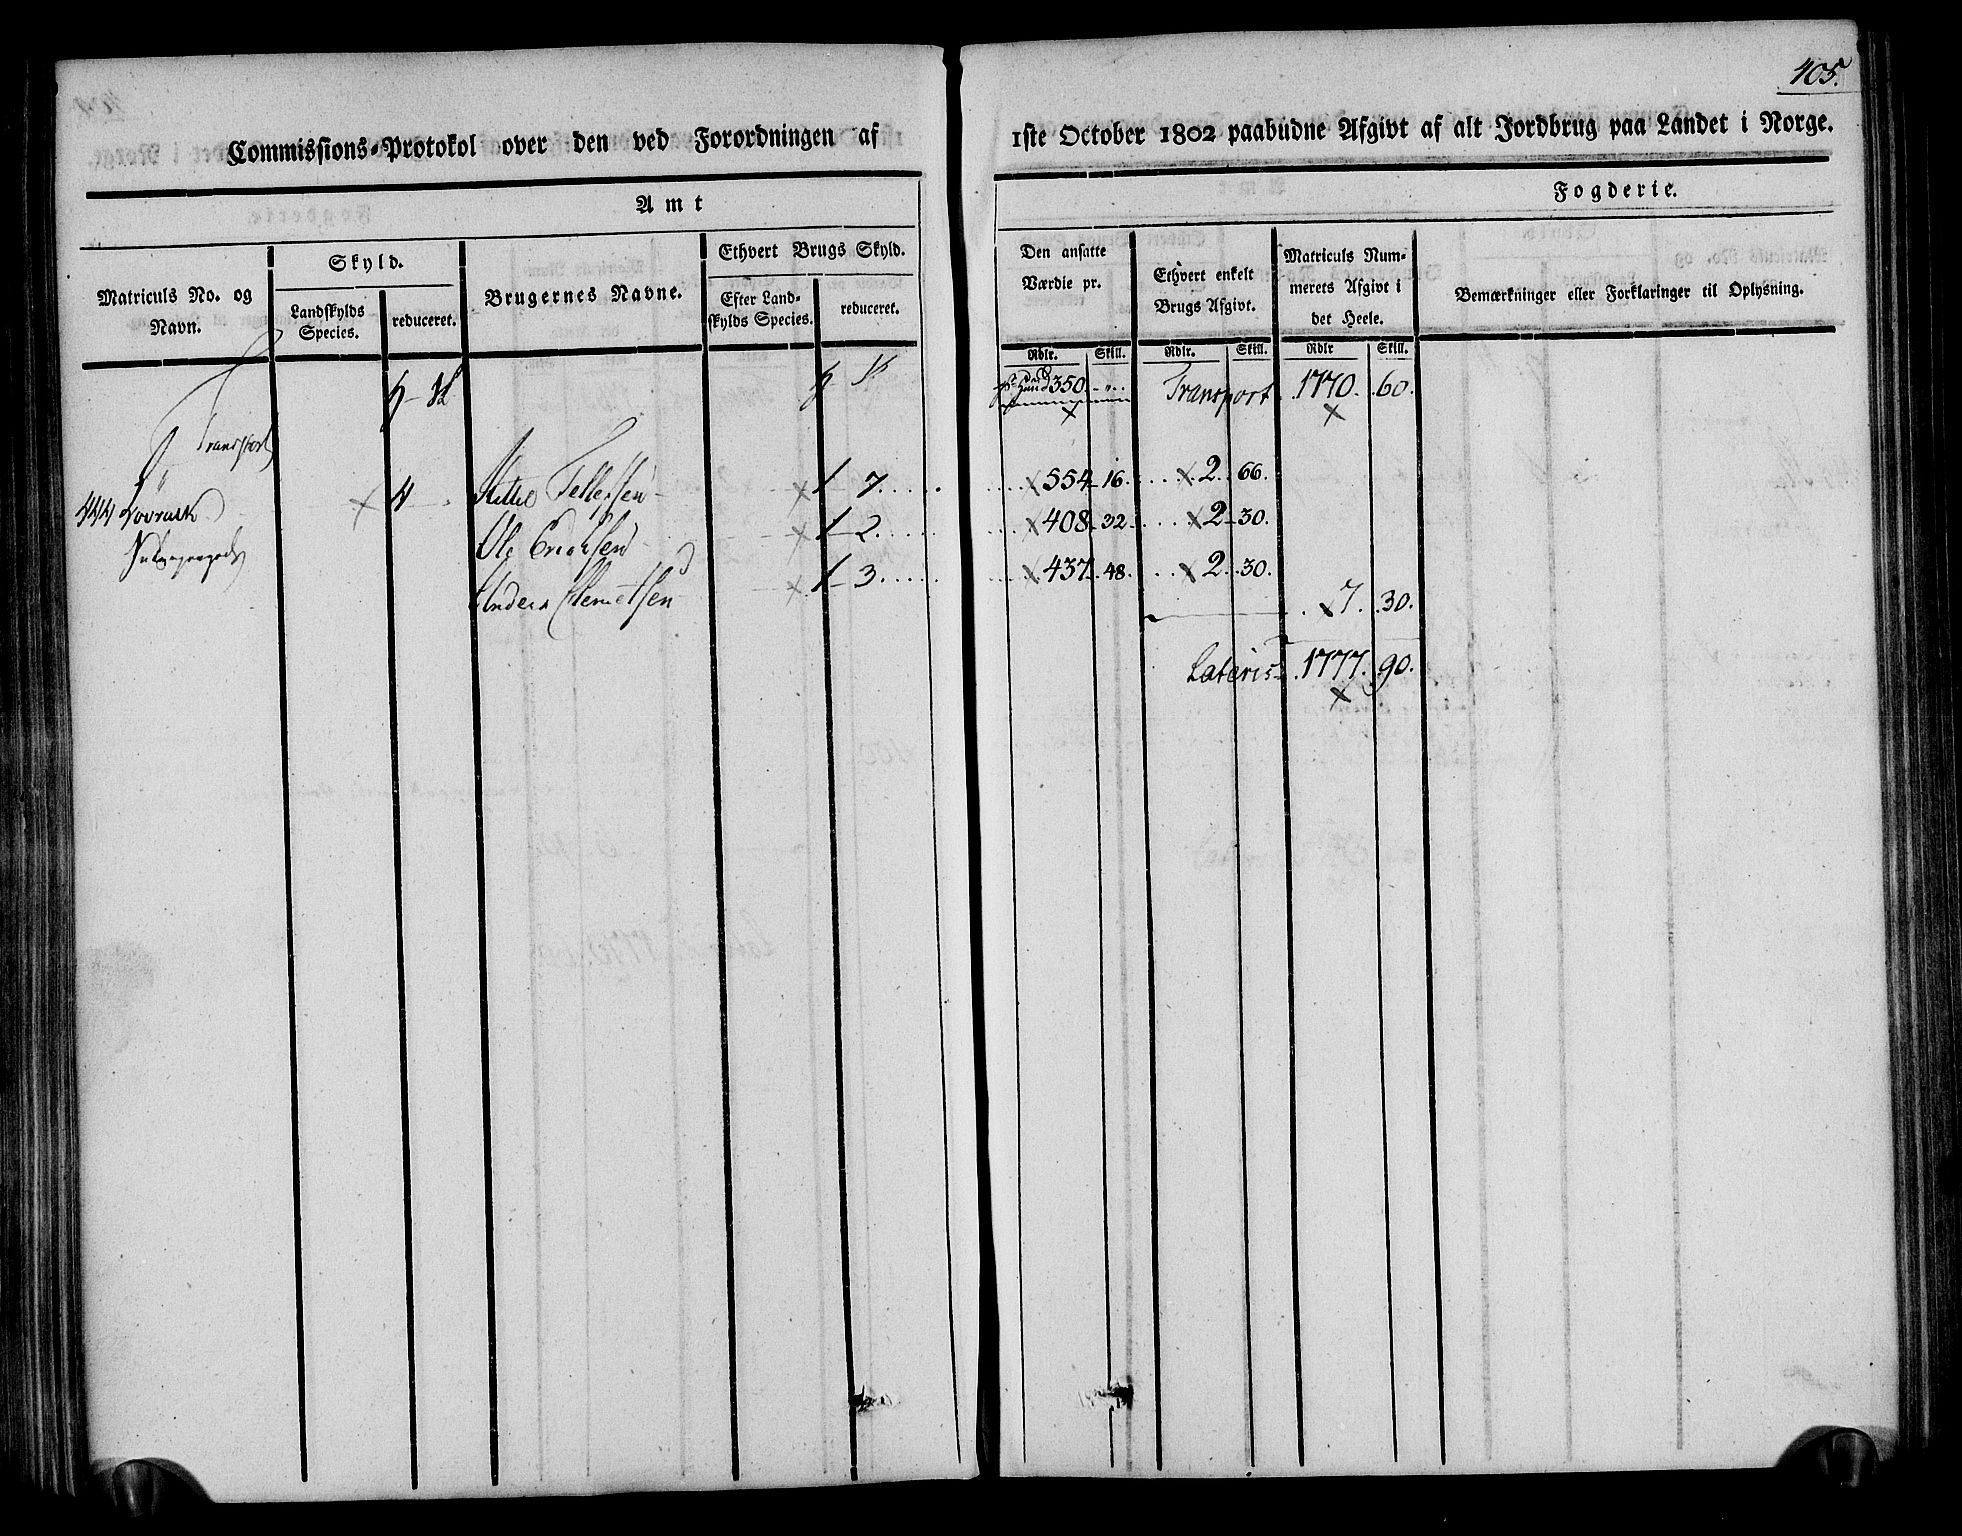 405.
Commissions-Protokol over den ved Forordningen af 1ste October 1802 paabudne Afgivt af alt Jordbrug paa Landet i Norge.
Amt Fogderie.
Matriculs No. og Navn.
Skyld.
Landskylds Species.
reduceret.
Brugernes Navne.
Ethvert Brugs Skyld.
Efter Landskylds Species.
reduceret.
Den ansatte Værdie pr.
Ethvert enkelt Brugs Afgivt.
Matriculs Nummerets Afgivt i det Heele.
Bemærkninger eller Forklaringer til Oplysning.
Rdlr. Skill. Rdlr. Skill. Rdlr Skill.
pr Hund 350 Transport 1770. 60.
Transport
Tellefsen 1 - 7. 554 - 16. 2. 66.
Ole Erichsen 1 - 2. 408 - 32. 2 - 30.
Anders Clemetsen 1 - 3. 437 - 48. 2. 30.
7. 30.
Lateris 1777. 90.